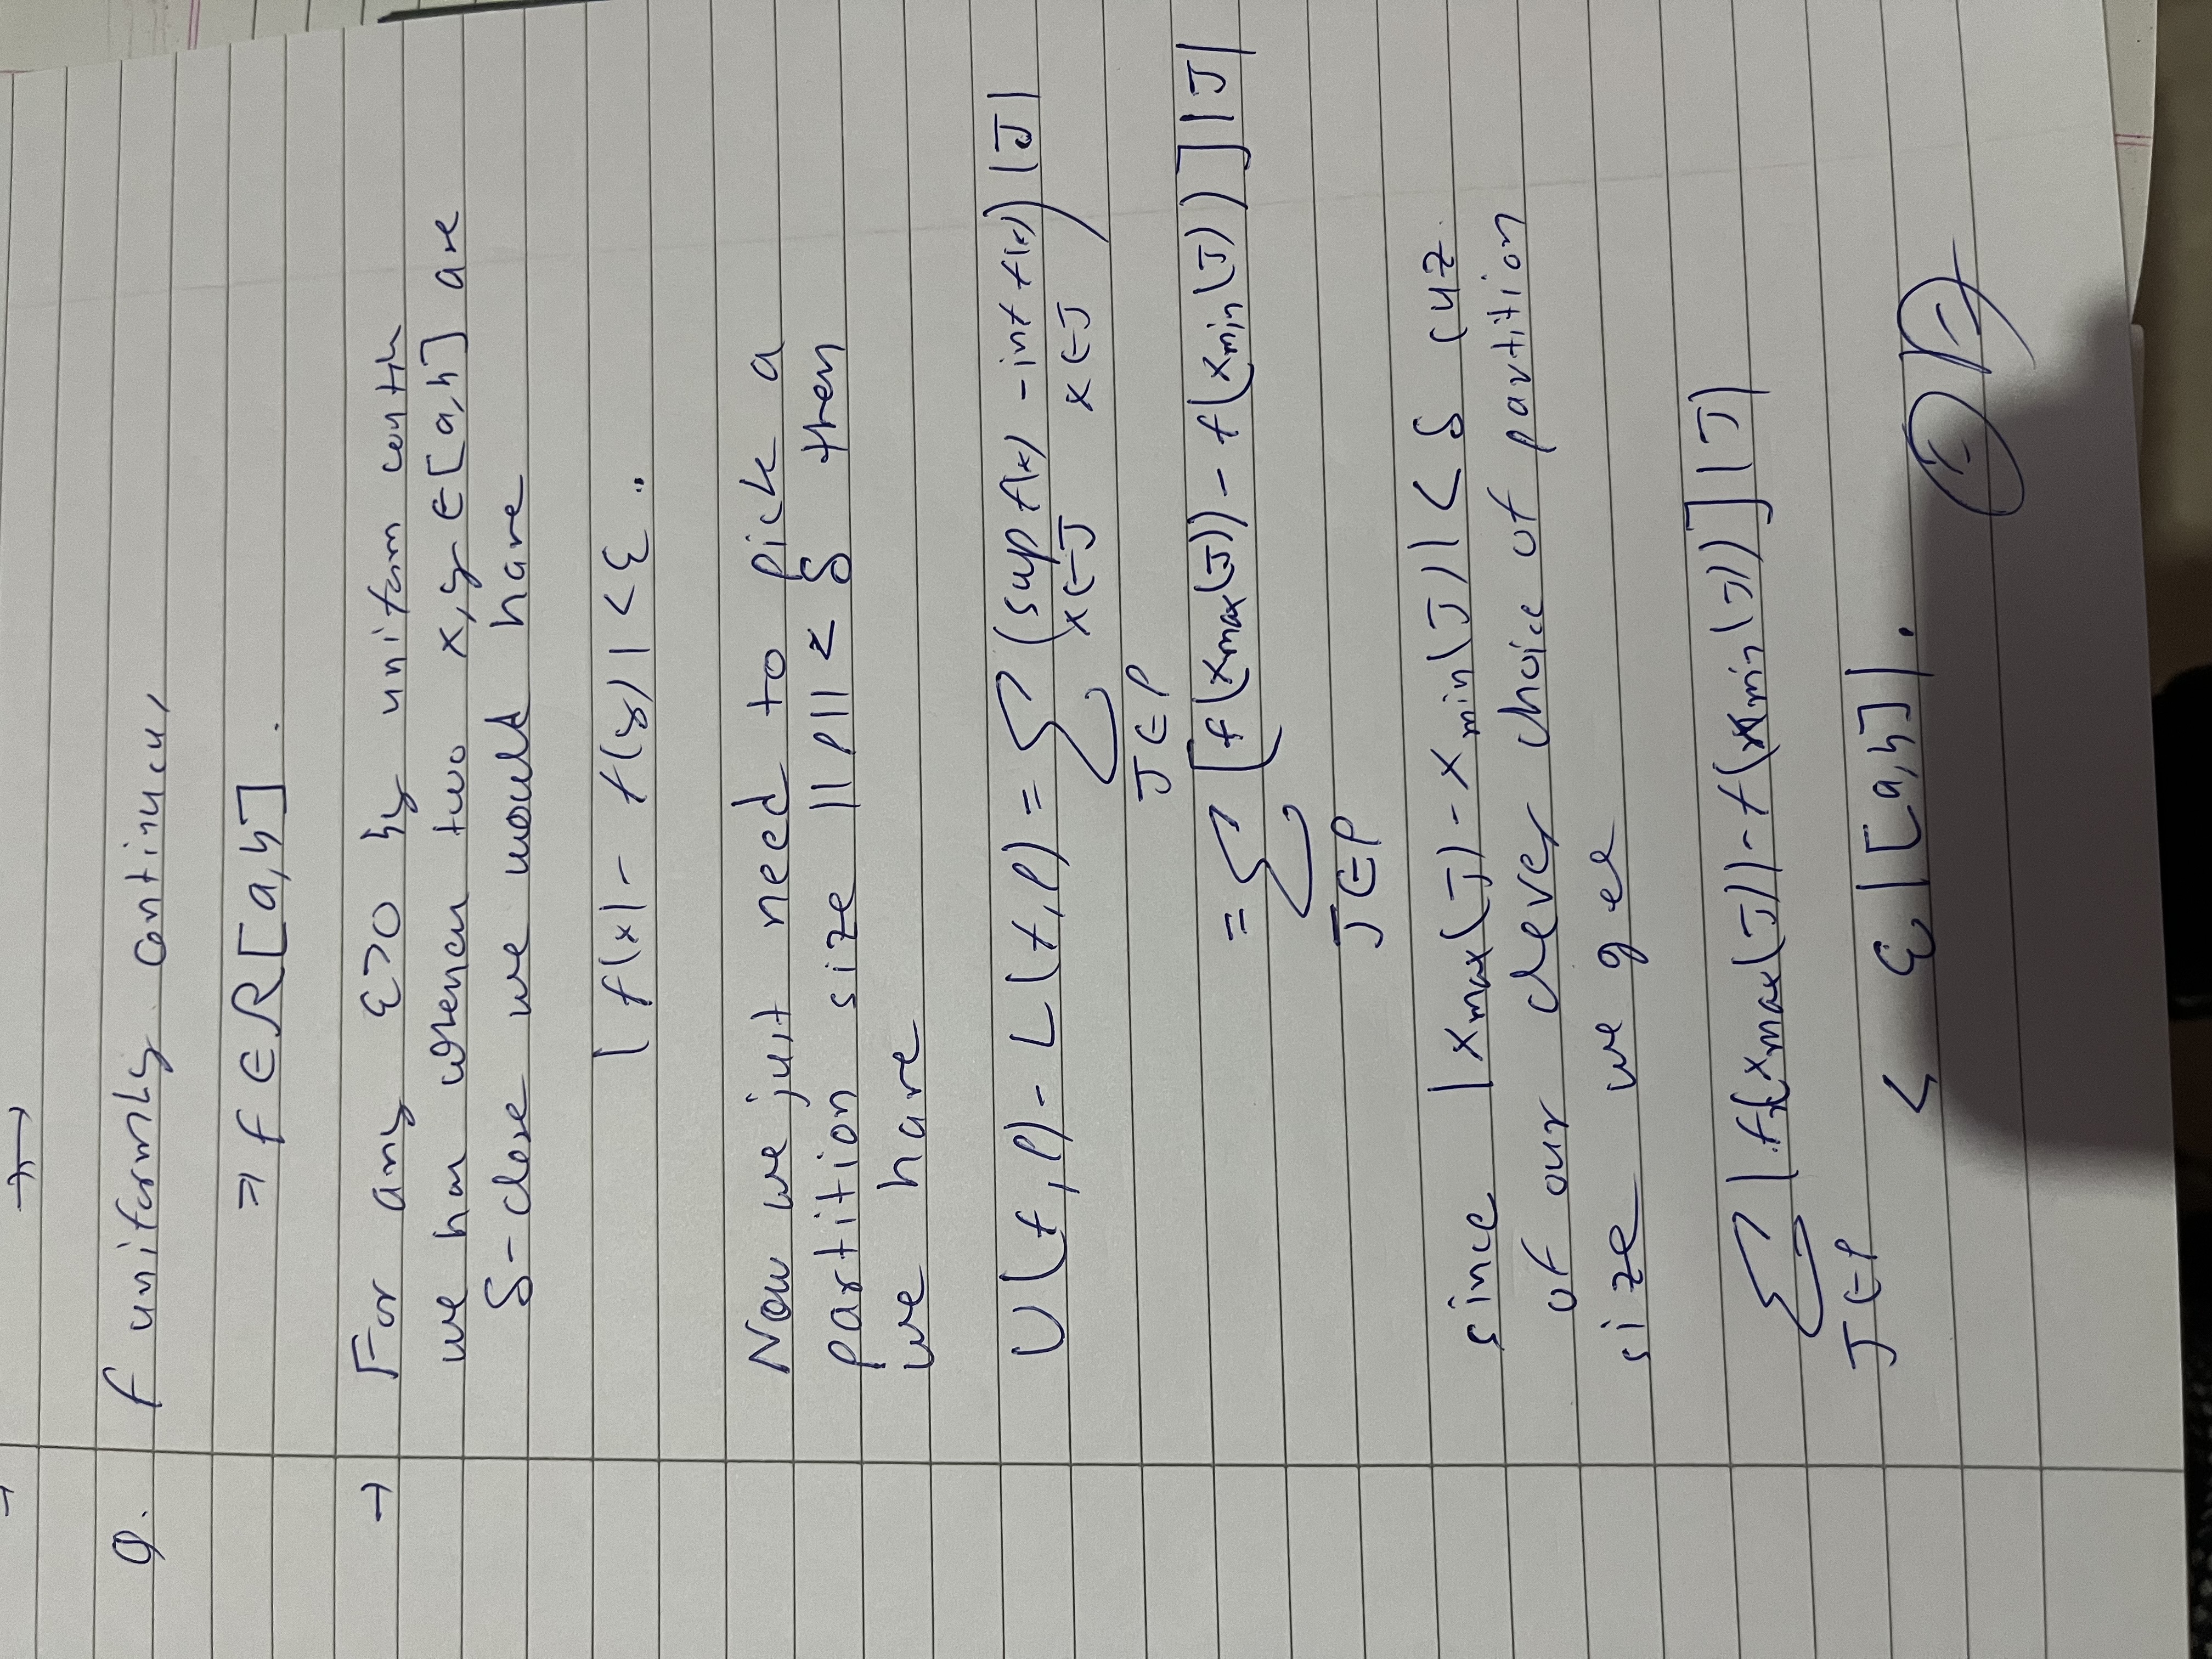 Q. f uniformly continuous
⇒ f ∈ R[a,b].
→ For any ε>0 by uniform contn
we hav whenev two x,y ∈ [a,b] are
δ-close we would have
|f(x) - f(y)| < ε.
Now we just need to pick a
partition size ||P|| < δ then
we have
U(f,P) - L(f,P) = ∑ (sup f(x) - inf f(x)) |J|
x∈J x∈J
J∈P
= ∑ [f(x_max(J)) - f(x_min(J))] |J|
J∈P
since |x_max(J) - x_min(J)| < δ cuz
of our clever choice of partition
size we get
∑ |f(x_max(J)) - f(x_min(J))] |J|
J∈P
< ε |[a,b]|.